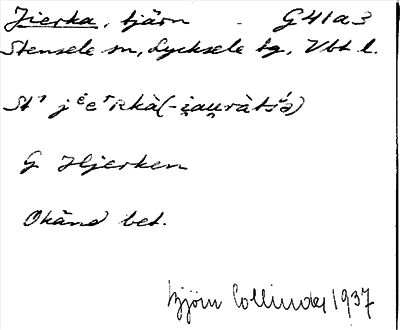 Jierka, tjärn - G41a3
Stensele sn, Lycksele tg, Vbt l.
G Hjerken
Okänd bet.
Björn Collinder 1937